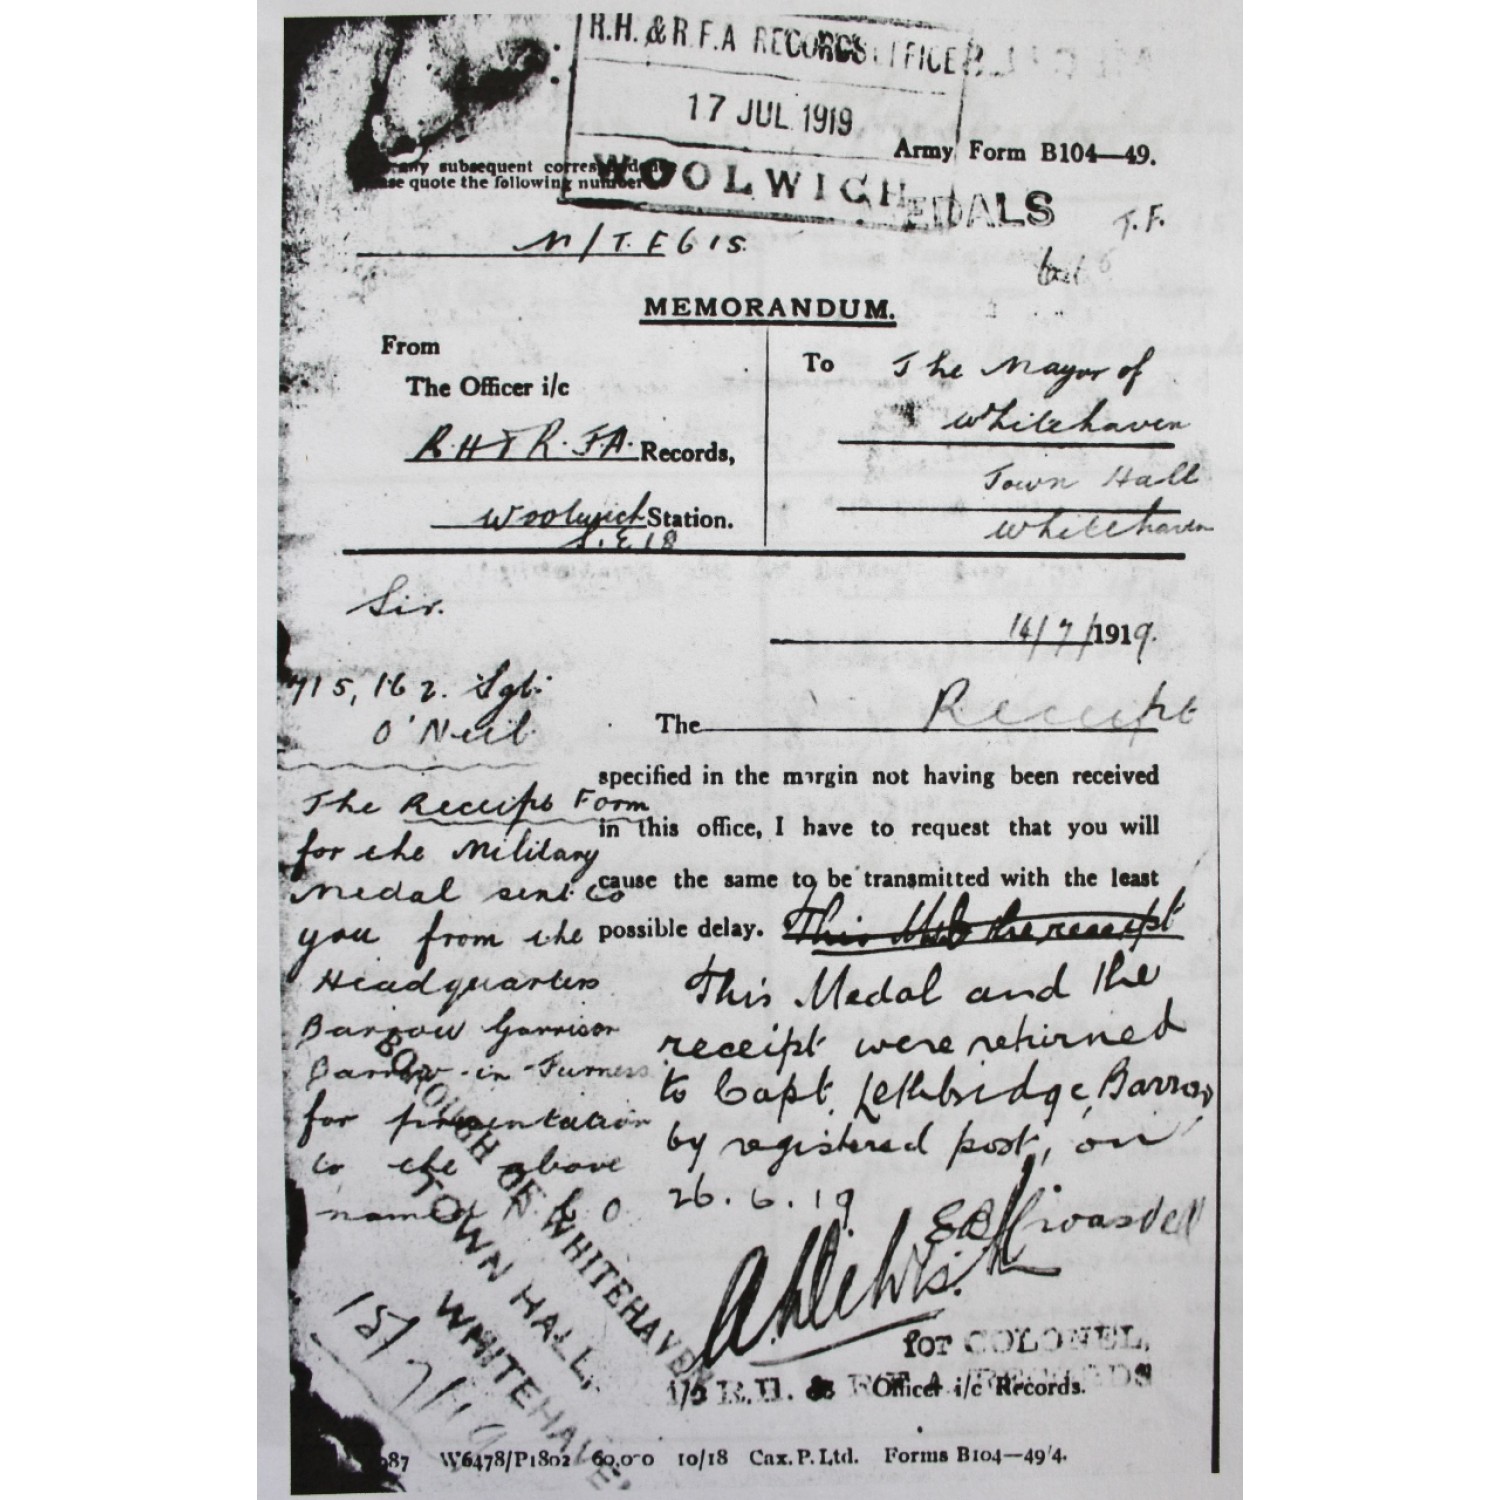 R.H. & R.F.A RECORDS OFFICE
17 JUL 1919
WOOLWICH
MEDALS
Army Form B104—49.
any subsequent correspondence
quote the following number
M/T.F 615
T.F.
MEMORANDUM.
From
The Officer i/c
R.H & R.F.A. Records,
Woolwich Station.
S.E 18
To The Mayor of
Whitehaven
Town Hall
Whitehaven
Sir.
14/7/1919.
715,162. Sgt.
O'Neil.
The Receipt Form
for the Military
Medal sent to
you from the
Headquarters
Barrow Garrison
Barrow-in-Furness
for presentation
to the above
named N.C.O
The Receipt
specified in the margin not having been received
in this office, I have to request that you will
cause the same to be transmitted with the least
possible delay. This the receipt
This Medal and the
receipt were returned
to Capt. Lethbridge, Barrow
by registered post, on
26.6.19
BOROUGH OF WHITEHAVEN
TOWN HALL,
WHITEHAVEN
15/7/19
for COLONEL,
i/c R.H. & R.F.A. RECORDS
Officer i/c Records.
087 W6478/P1802 60,000 10/18 Cax. P. Ltd. Forms B104—49/4.